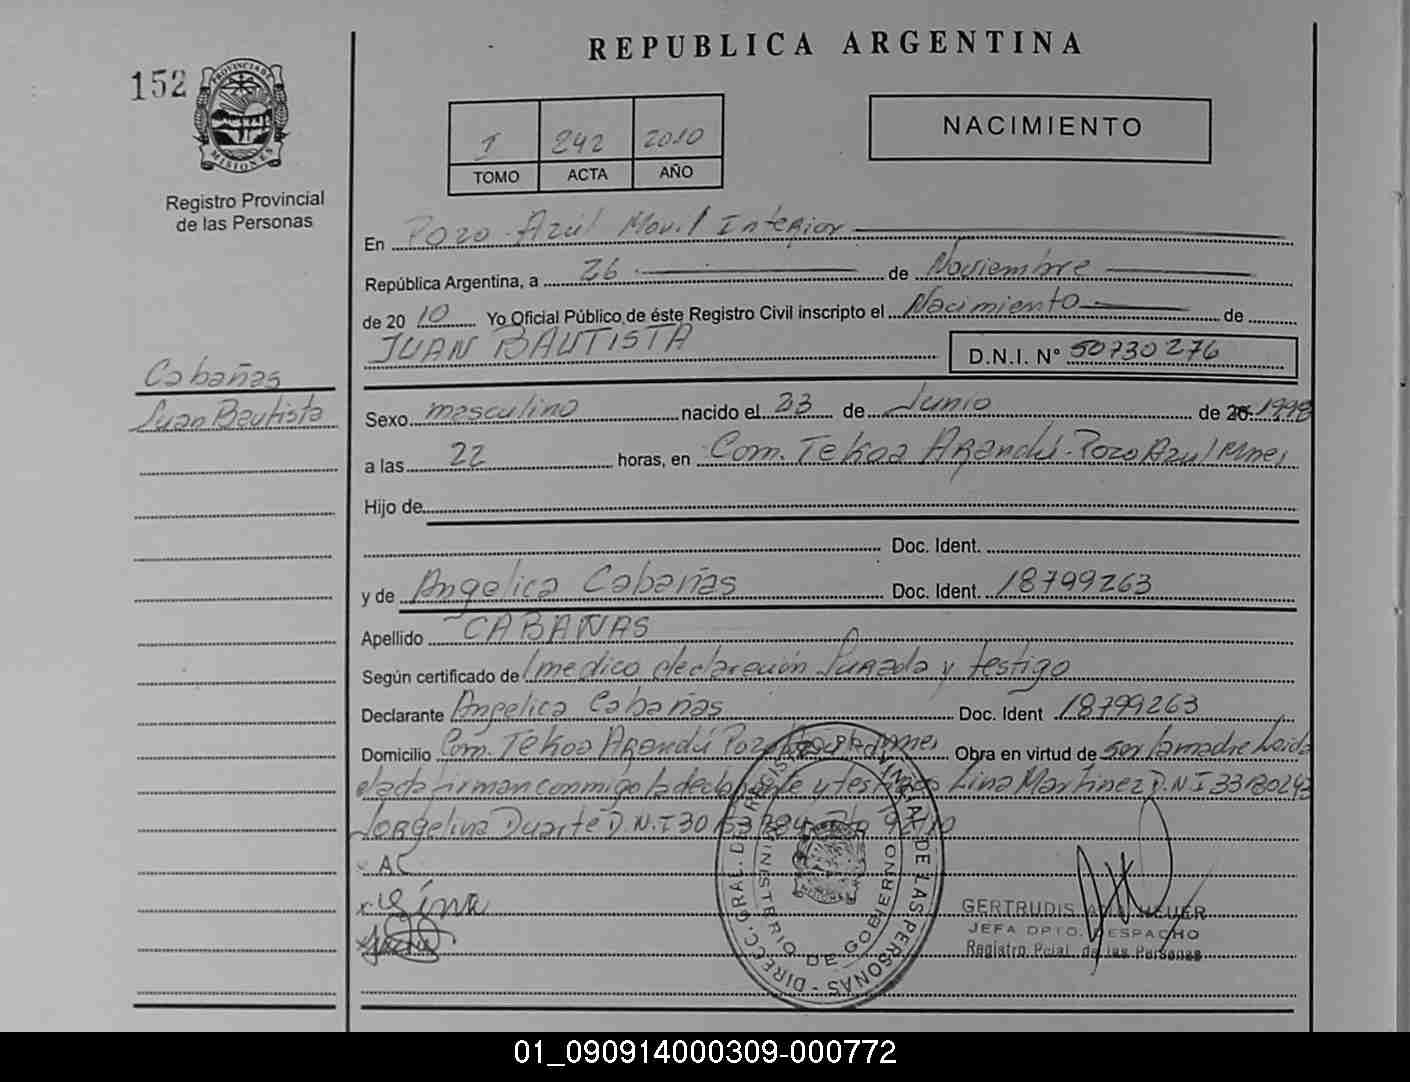 REPUBLICA ARGENTINA
152
PROVINCIA DE
MISIONES
Registro Provincial
de las Personas
I 242 2010
TOMO ACTA AÑO
NACIMIENTO
En Pozo Azúl Movil Interior
República Argentina, a 26 de Noviembre
de 2010 Yo Oficial Público de éste Registro Civil inscripto el Nacimiento de
JUAN BAUTISTA D.N.I. N° 50730276
Cabañas
Juan Bautista
Sexo masculino nacido el 23 de Junio de 20 1998
a las 22 horas, en Com. Tekoa Arandú-Pozo Azul Mnes
Hijo de
Doc. Ident.
y de Angelica Cabañas Doc. Ident. 18799263
Apellido CABAÑAS
Según certificado de medico declaración Jurada y testigo
Declarante Angelica Cabañas Doc. Ident 18799263
Domicilio Com. Tekoa Arandú Pozo Azul Mnes Obra en virtud de ser la madre Leida
el acta firman conmigo la declarante y testigo Lina Martinez D.N.I
Jorgelina Duarte D.N.I
AC
Lina
DIRECC. GRAL. DEL REGISTRO PROVINCIAL DE LAS PERSONAS
MINISTERIO DE GOBIERNO
MISIONES
GERTRUDIS HEUER
JEFA DPTO. DESPACHO
Registro Pcial. de las Personas
01_090914000309-000772